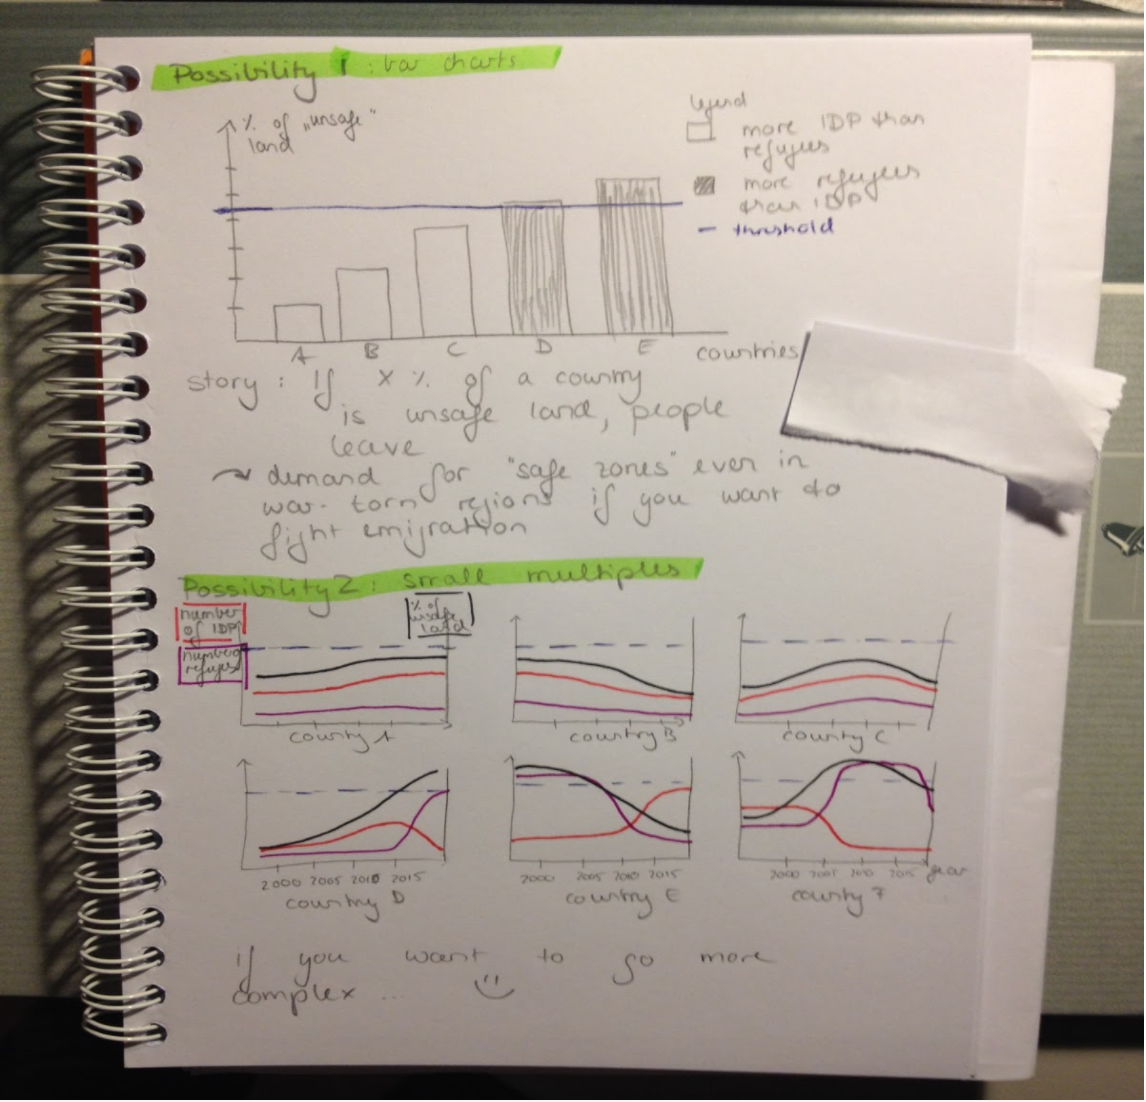 Possibility 1 : bar charts
% of „unsafe"
land
legend
more IDP than
refugees
more refugees
than IDP
threshold
A B C D E countries
story : If X % of a country
is unsafe land, people
leave
demand for "safe zones" even in
war-torn regions if you want to
fight emigration
Possibility 2 : small multiples
number
of IDP
% of
unsafe
land
number
refugees
country A country B country C
2000 2005 2010 2015 2000 2005 2010 2015 2000 2005 2010 2015 year
country D country E country F
if you want to go more
complex ...